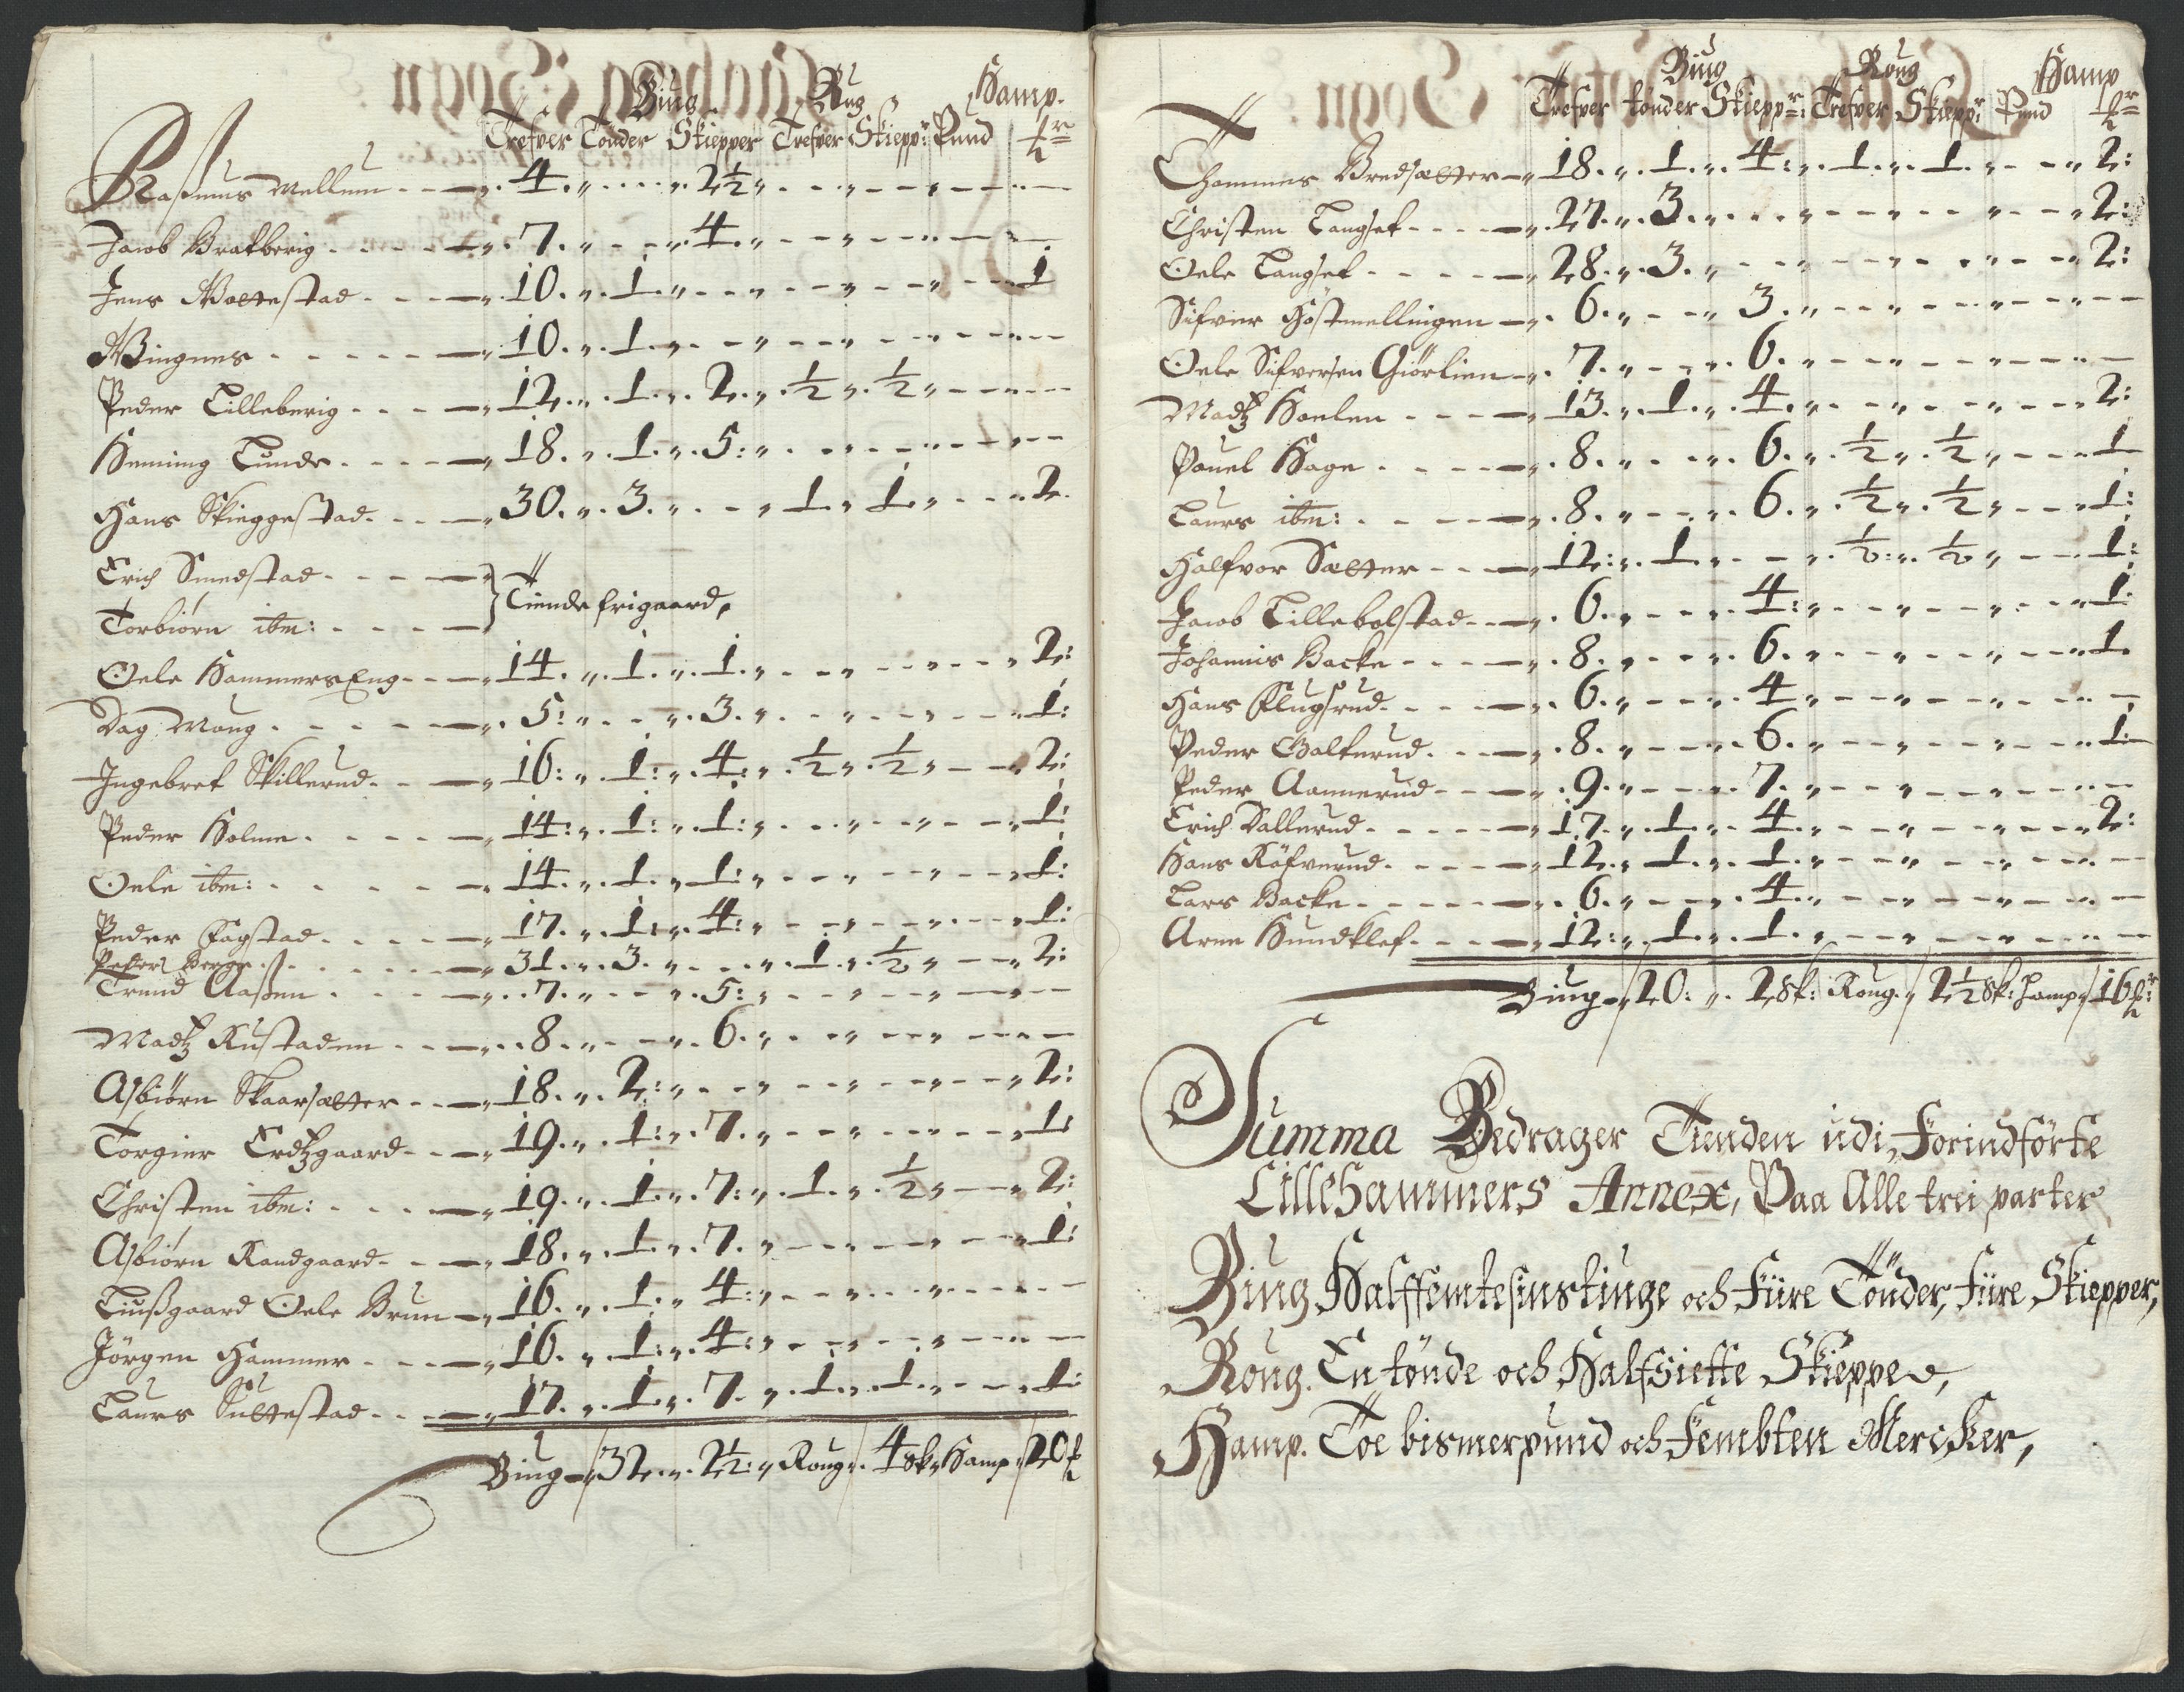 Biug Rug Hamp.
Trefver Tönder Skiepper Trefver Skiepr: Pund
Rasmus Mellum - - - 4 . „ . . . . „ 2½ „ - - - „ - - „ - - -
Jacob Bratberig - - - 7 . „ - - „ 4 . „ - - - „ - - -
Jens Woltestad - - - 10 . „ 1 . „ - - - „ - - - „ - - - 1
Wingnes - - - 10 . „ 1 . „ - - - „ - - - „ - - -
Peder Lilleberig - - - 12 . „ 1 . „ 2 . „ ½ „ ½ „ - - -
Heming Lunde - - - 18 . „ 1 . „ 5 : „ - - - „ - - -
Hans Skieggestad - - - 30 . „ 3 . „ - - „ 1 „ 1 „ - - - 2
Erich Smedstad - - -
Tiende frigaard,
Torbiörn ibm: - - -
Oele HammersEng - - - 14 . „ 1 . „ 1 . „ - - - „ - - - „ 2:
Dag Moug - - - 5: „ - - „ 3 . „ - - - „ - - - 1:
Ingebret Skillerud - - - 16: „ 1: „ 4: „ ½ „ ½ „ - - „ 2:
Peder Holme - - - 14: „ 1: „ 1: „ - - - „ - - - „ 1:
Oele ibm: - - - 14 . „ 1 . „ 1: „ - - - „ - - - „ 1:
Peder Fagstad - - - 17 . „ 1: „ 4: „ - - - „ - - - „ 1:
Peder Berge - - - 31 . „ 3 . „ - - „ 1 . „ ½ „ - - „ 2:
Trund Aaßen - - - 7 . „ - - „ 5: „ - - - „ - - -
Madtz Rustaden - - - 8 . „ - - „ 6 . „ - - - „ - - -
Asbiörn Skaarsætter - - - 18 . „ 2: „ - - - „ - - - „ 2:
Torgier Erdtzgaard - - - 19 . „ 1: „ 7 . „ - - - „ - - - „ 1:
Christen ibm: - - - 19 . „ 1 . „ 7: „ 1 . „ ½ „ - - „ 2:
Asbiörn Randgaard - - - 18 . „ 1 . „ 7 . „ - - - „ - - - „ 1:
Liußgaard Oele Brun - 16 . „ 1 . „ 4: „ - - - „ - - -
Jörgen Hammer - - - 16 . „ 1: „ 4: „ - - - „ - - -
Laurs Sultestad - - - 17 . „ 1 . „ 7 . „ 1 . „ 1 . „ - - - 1:
Biug - 32 . „ 2½: „ Roug „ 4 sk „ Hamp „ 20
Biug Roug Hamp
Trefver tönder Skieppr: Trefver Skieppr: Pund
Thommes Bredsætter - 18 . „ 1 . „ 4: „ 1 . „ 1 . „ - - „ 2:
Christen Langset - - - 27 . „ 3 . „ - - - „ - - - „ 2:
Oele Langset - - - 28 . „ 3 . „ - - - „ - - - „ 2:
Sifver Höstmellingen - 6 . „ - - „ 3 . „ - - - „ - - -
Oele Sifversen Giörlien - 7 . „ - - „ 6 . „ - - - „ - - -
Madtz Hoelen - - - 13 . „ 1 . „ 4 . „ - - - „ - - - 2:
Pouel Hage - - - 8 . „ - - „ 6 . „ ½ „ ½ „ - - - 1
Laurs ibm: - - - 8 . „ - - „ 6 . „ ½ „ ½ „ - - - 1:
Halfvor Sætter - - - 12: „ 1 . „ - - „ ½: „ ½ „ - - - 1:
Jacob Lillebolstad - - - 6 . „ - - „ 4: „ - - - „ - - - 1
Johannis Backe - - - 8 . „ - - „ 6 . „ - - - „ - - - 1
Hans Flugsrud - - - 6 . „ - - „ 4 . „ - - - „ - - -
Peder Galterud - - - 8 . „ - - „ 6 . „ - - - „ - - - 1
Peder Aannerud - - - 9 . „ - - „ 7 . „ - - - „ - - -
Erich Dallerud - - - 17 . „ 1 . „ 4 . „ - - - „ - - - 2:
Hans Röfverud - - - 12 . „ 1 . „ 1 . „ - - - „ - - -
Lars Backe - - - 6 . „ - - „ 4 . „ - - - „ - - -
Arne Hundklef - - - 12: „ 1 . „ 1 . „ - - - „ - - -
Biug - 20: „ 2 sk: Roug „ 2½ sk: Hamp „ 16
Summa Bedrager Tienden udi Forindförte
Lillehammers Annex, Paa Alle trei parter
Biug Halffemtesinstiuge och Fiire Tönder, fiire Skiepper,
Roug. En tönde och Halfsiette Skieppe,
Hamp. Toe bismerpund och Fembten Mercker,